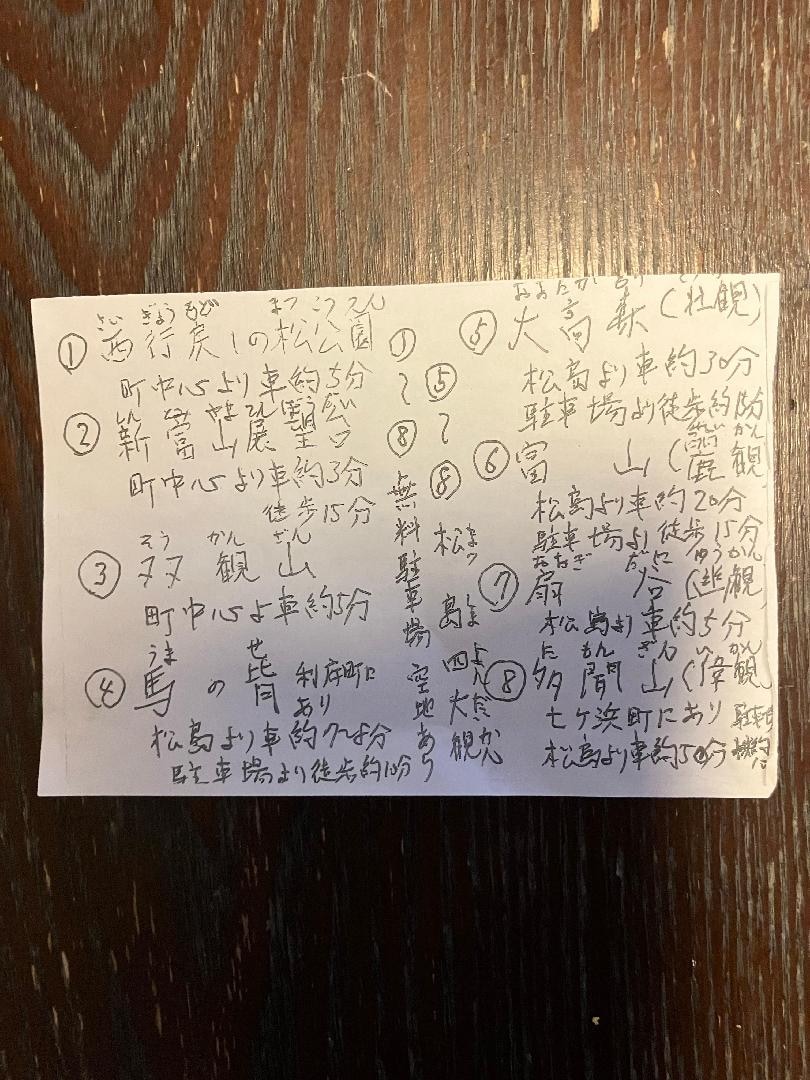 さい ぎょう もど まつ こう えん
① 西行戻しの松公園
町中心より車約5分
しん とみ やま てん ぼう だい
② 新富山展望台
町中心より車約3分
徒歩15分
そう かん ざん
③ 双観山
町中心よ車約5分
うま せ
④ 馬の背 利府町に
あり
松島より車約7〜8分
駐車場より徒歩約10分
①〜⑧ 無料駐車場 空地あり
⑤〜⑧ 松島四大観
まつ しま よん だい かん
おおたか もり
⑤ 大高森 (壮観)
松島より車約30分
駐車場より徒歩約
れい かん
⑥ 富山 (麗観)
松島より車約20分
駐車場より徒歩15分
おおぎ だに ゆう かん
⑦ 扇谷 (幽観)
松島より車約5分
た もん ざん い かん
⑧ 多聞山 (偉観)
七ケ浜町にあり
松島より車約50分